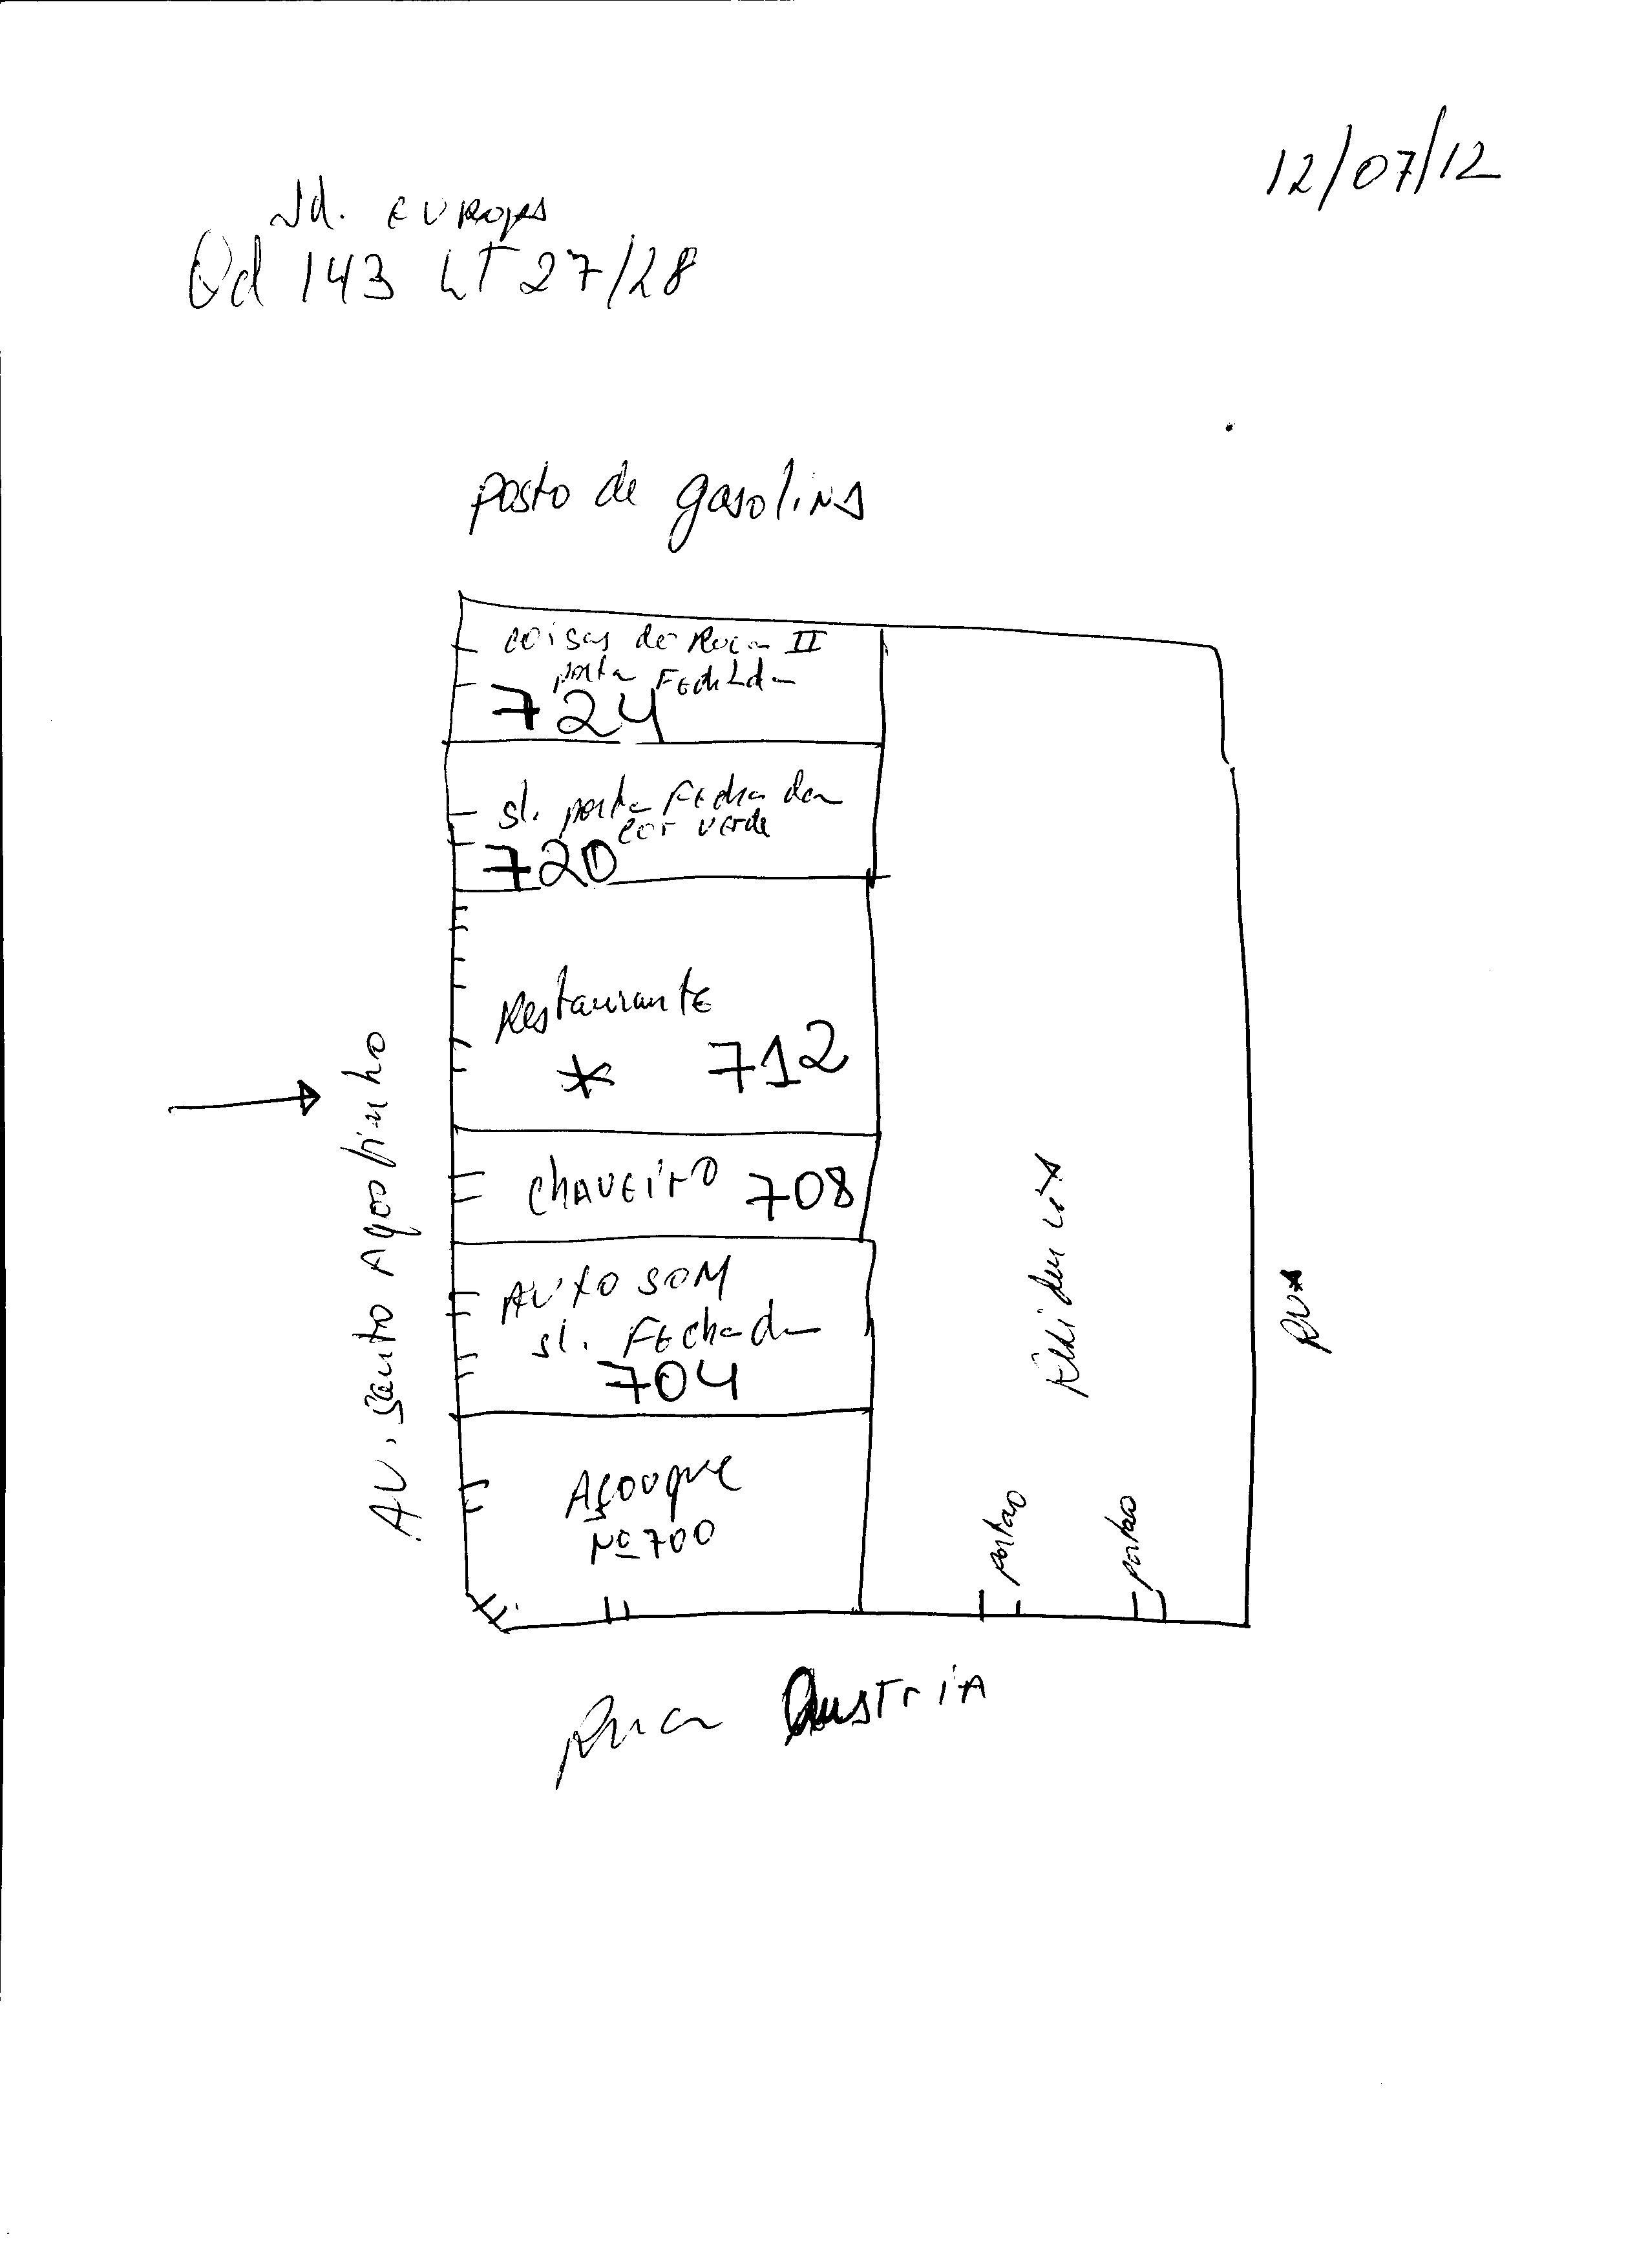 12/07/12
Jd. EUROPA
Qd 143 LT 27/28
posto de gasolina
coisas da Roça II
porta Fechada
724
sl. porta Fechada
cor verde
720
Restaurante
* 712
CHAVEirO 708
AUTO SOM
sl. Fechada
704
Açougue
Nº 700
AV. Santo Agostinho
Residencia
portao
portao
RUA
Rua AUSTRIA